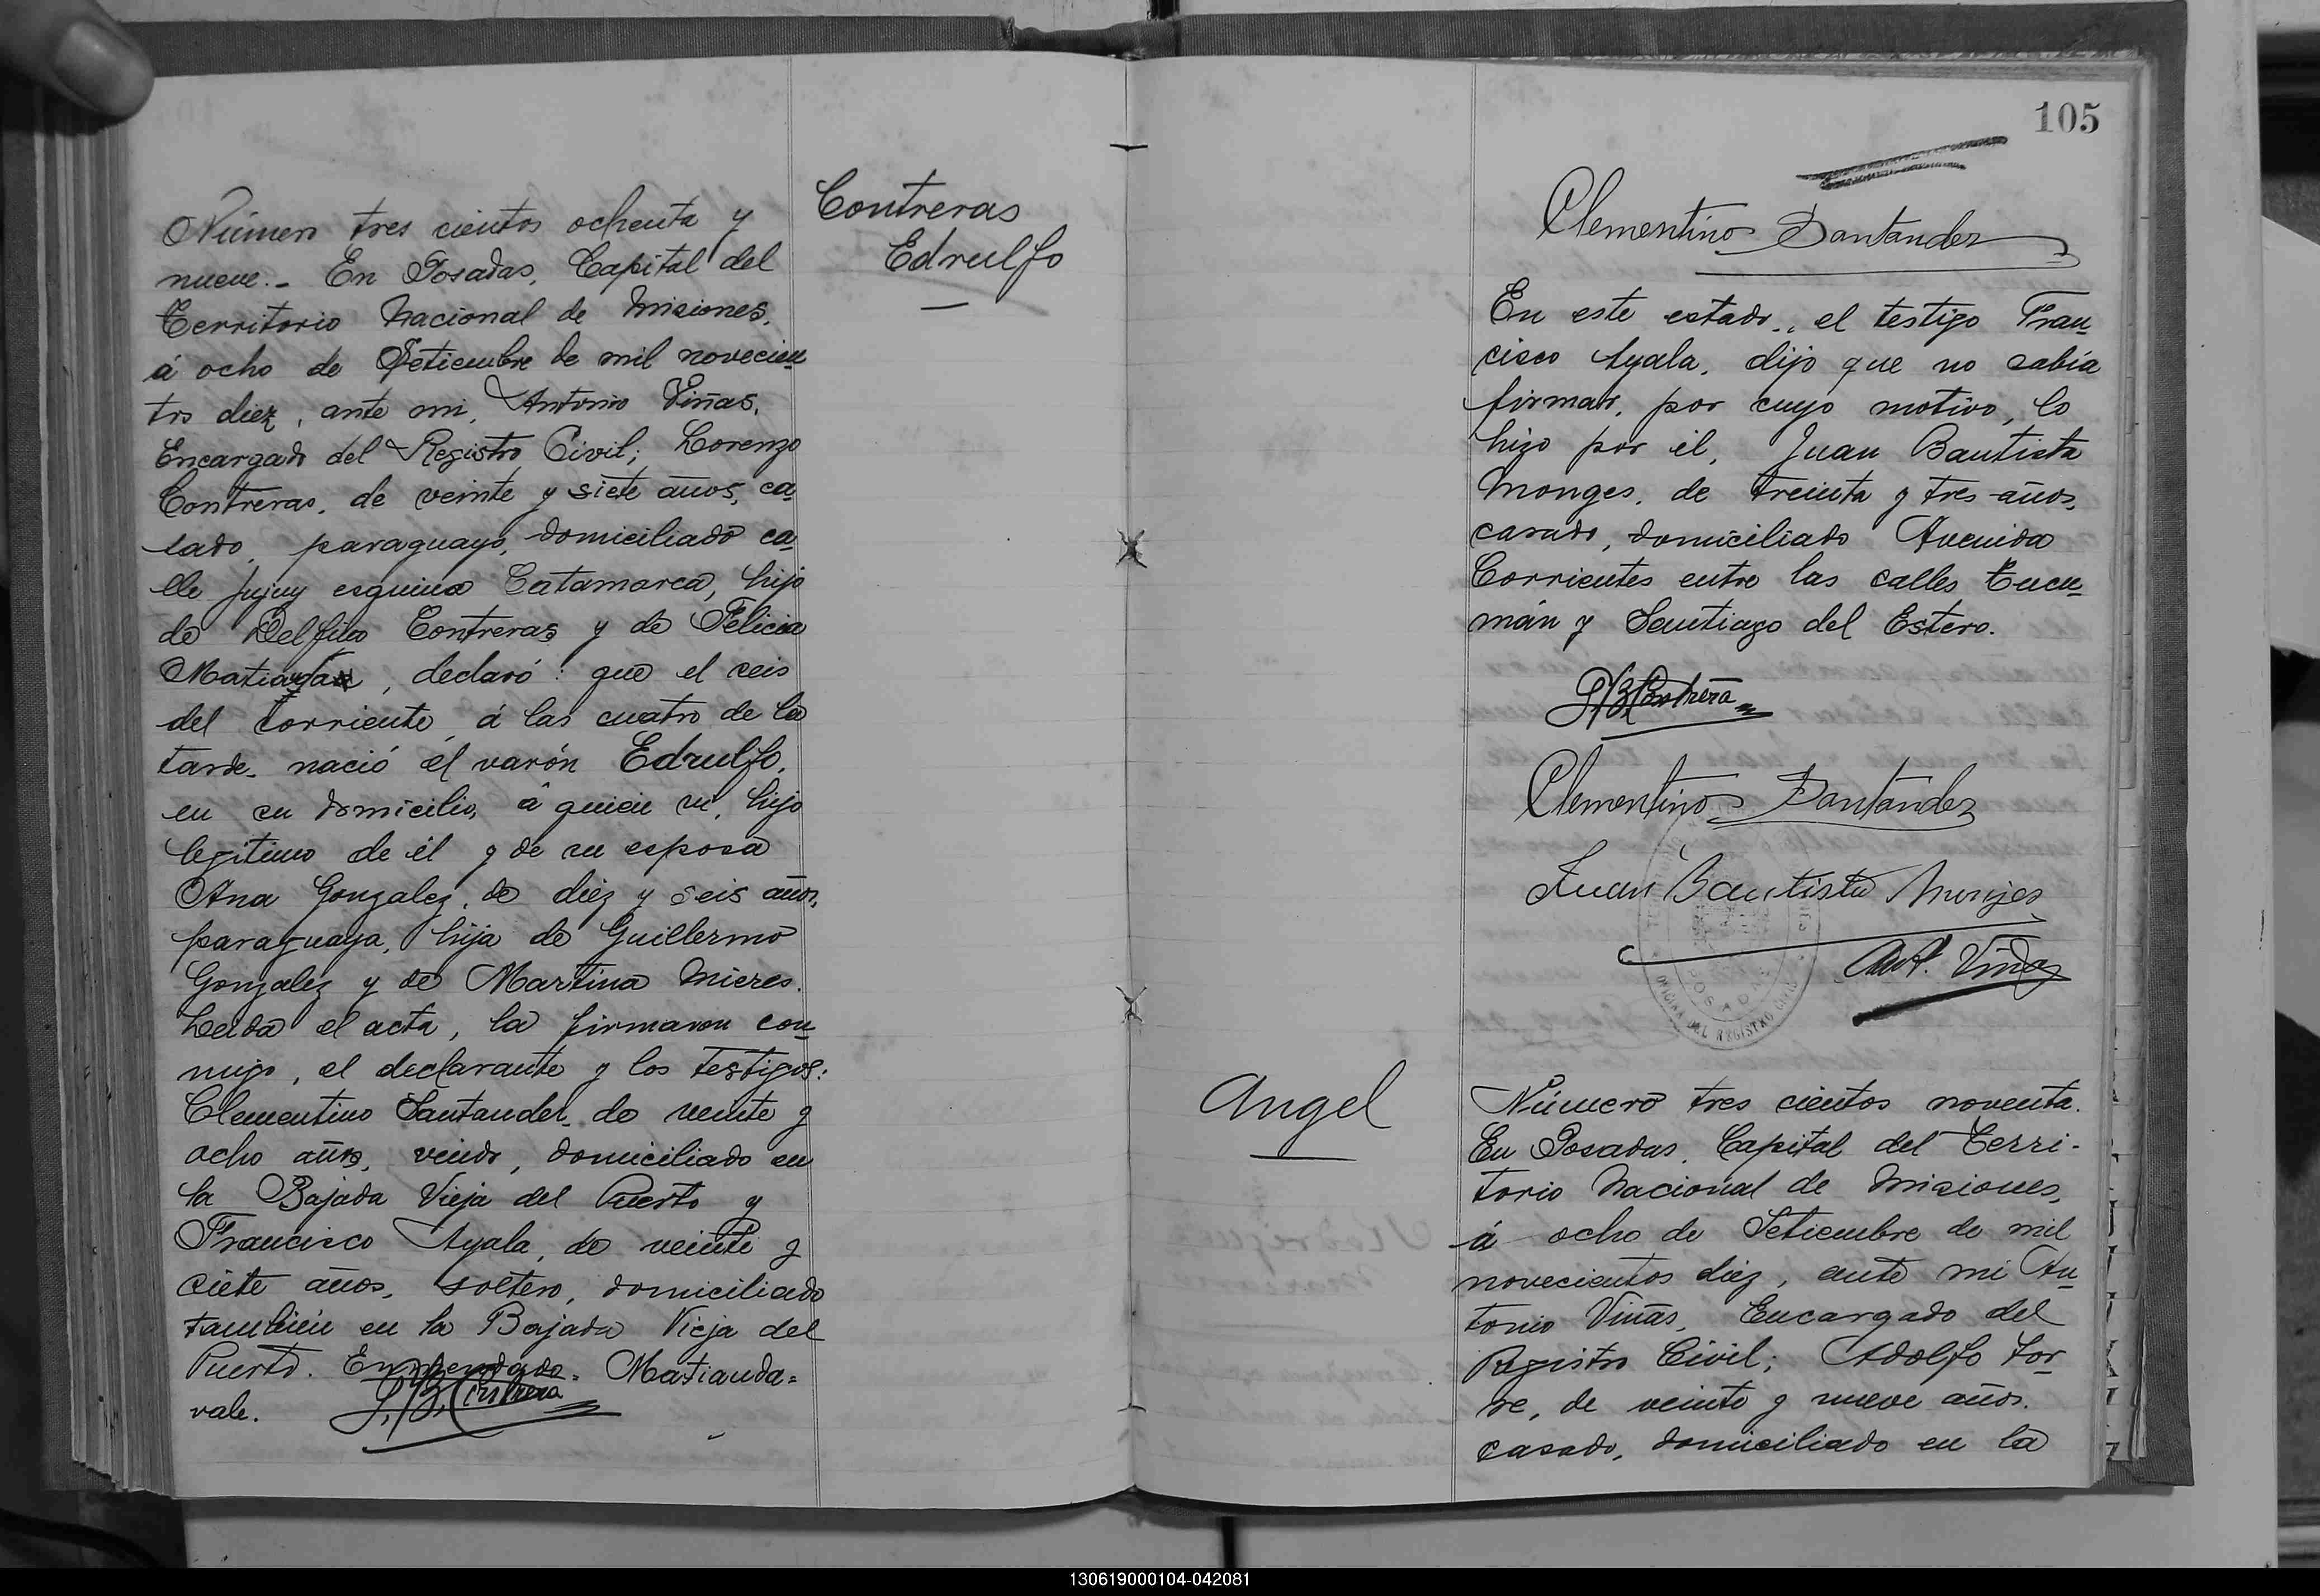 Número tres cientos ochenta y
nueve.- En Posadas, Capital del
Territorio Nacional de Misiones,
á ocho de Setiembre de mil novecien
tos diez, ante mi, Antonio Viñas,
Encargado del Registro Civil; Lorenzo
Contreras, de veinte y siete años, ca
sado, paraguayo, domiciliado ca
lle Jujuy esquina Catamarca, hijo
de Delfino Contreras y de Felicia
Matianda, declaró: que el seis
del corriente, á las cuatro de la
tarde, nació el varón Edrulfo,
en su domicilio, á quien vi, hijo
legitimo de él y de su esposa
Ana Gonzalez, de diez y seis años,
paraguaya, hija de Guillermo
Gonzalez y de Martina Mieres.
Leida el acta, la firmaron con
migo, el declarante y los testigos:
Clementino Santander, de veinte y
ocho años, viudo, domiciliado en
la Bajada Vieja del Puerto y
Francisco Ayala, de veinte y
siete años, soltero, domiciliado
también en la Bajada Vieja del
Puerto. Enmendado = Matianda =
vale.
Contreras
Edrulfo
105
Clementino Santander
En este estado, el testigo Fran
cisco Ayala, dijo que no sabía
firmar, por cuyo motivo, lo
hizo por él, Juan Bautista
Monges, de treinta y tres años,
casado, domiciliado Avenida
Corrientes entre las calles Tucu
mán y Santiago del Estero.
Clementino Santander
Juan Bautista Monges
Ant. Viñas
OFICINA DEL REGISTRO CIVIL
POSADAS
Angel
Número tres cientos noventa.
En Posadas, Capital del Terri-
torio Nacional de Misiones,
á ocho de Setiembre de mil
novecientos diez, ante mi An
tonio Viñas, Encargado del
Registro Civil; Adolfo Tor
re, de veinte y nueve años,
casado, domiciliado en la
130619000104-042081